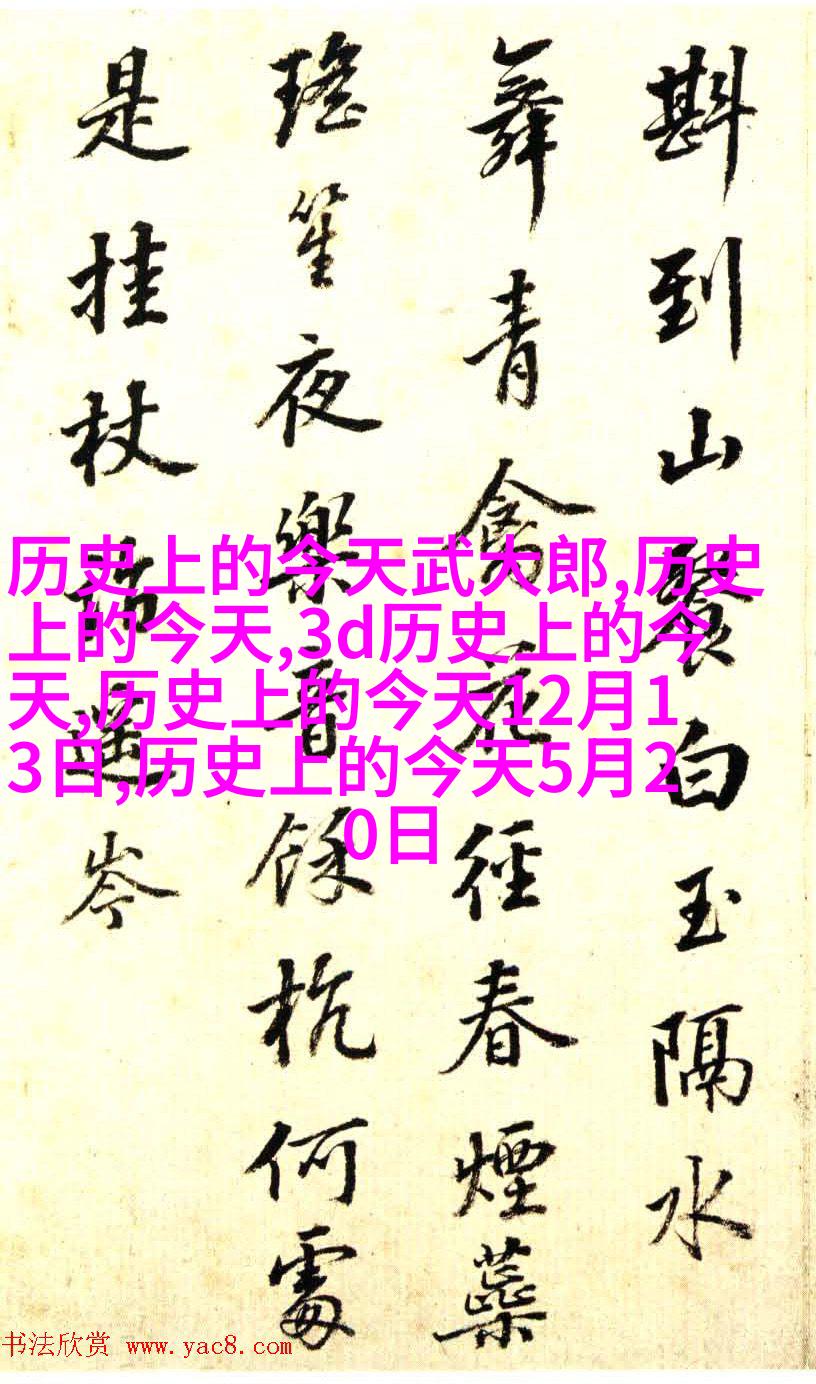 斟到山白玉隔水
舞青禽花徑春煙蘂
瑤笙夜樂音餘杭何處
是挂杖話遥岑
历史上的今天武大郎,历史
上的今天,3d历史上的今
天,历史上的今天12月1
3日,历史上的今天5月2
0日
书法欣赏 www.yac8.com